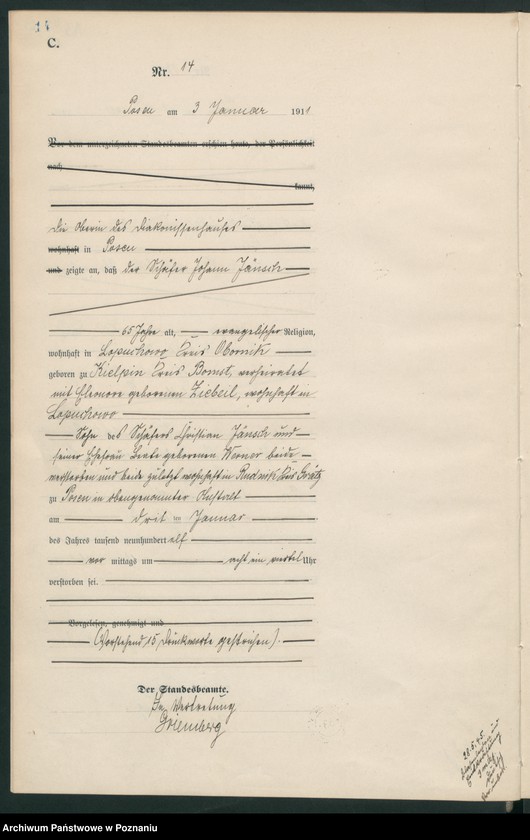 14
C.
Nr. 14
Posen am 3 Januar 1911
Vor dem unterzeichneten Standesbeamten erschien heute, der Persönlichkeit
nach
kannt,
die Oberin des Diakonissenhauses
wohnhaft in Posen
und zeigte an, daß der Schäfer Johann Jänsch
65 Jahre alt, evangelischer Religion,
wohnhaft in Lopuchowo Kreis Obornik
geboren zu Kielpin Kreis Bomst, verheiratet
mit Eleonore geborenen Ziebeil, wohnhaft in
Lopuchowo
Sohn des Schäfers Christian Jänsch und
seiner Ehefrau Beate geborenen Werner beide
verstorben und beide zuletzt wohnhaft in Rudnik Kreis Grätz
zu Posen in obengenannter Anstalt
am drit ten Januar
des Jahres tausend neunhundert elf
vor mittags um acht ein viertel Uhr
verstorben sei.
Vorgelesen, genehmigt und
(Vorstehend 15 Druckworte gestrichen).
Der Standesbeamte.
In Vertretung
Archiwum Państwowe w Poznaniu